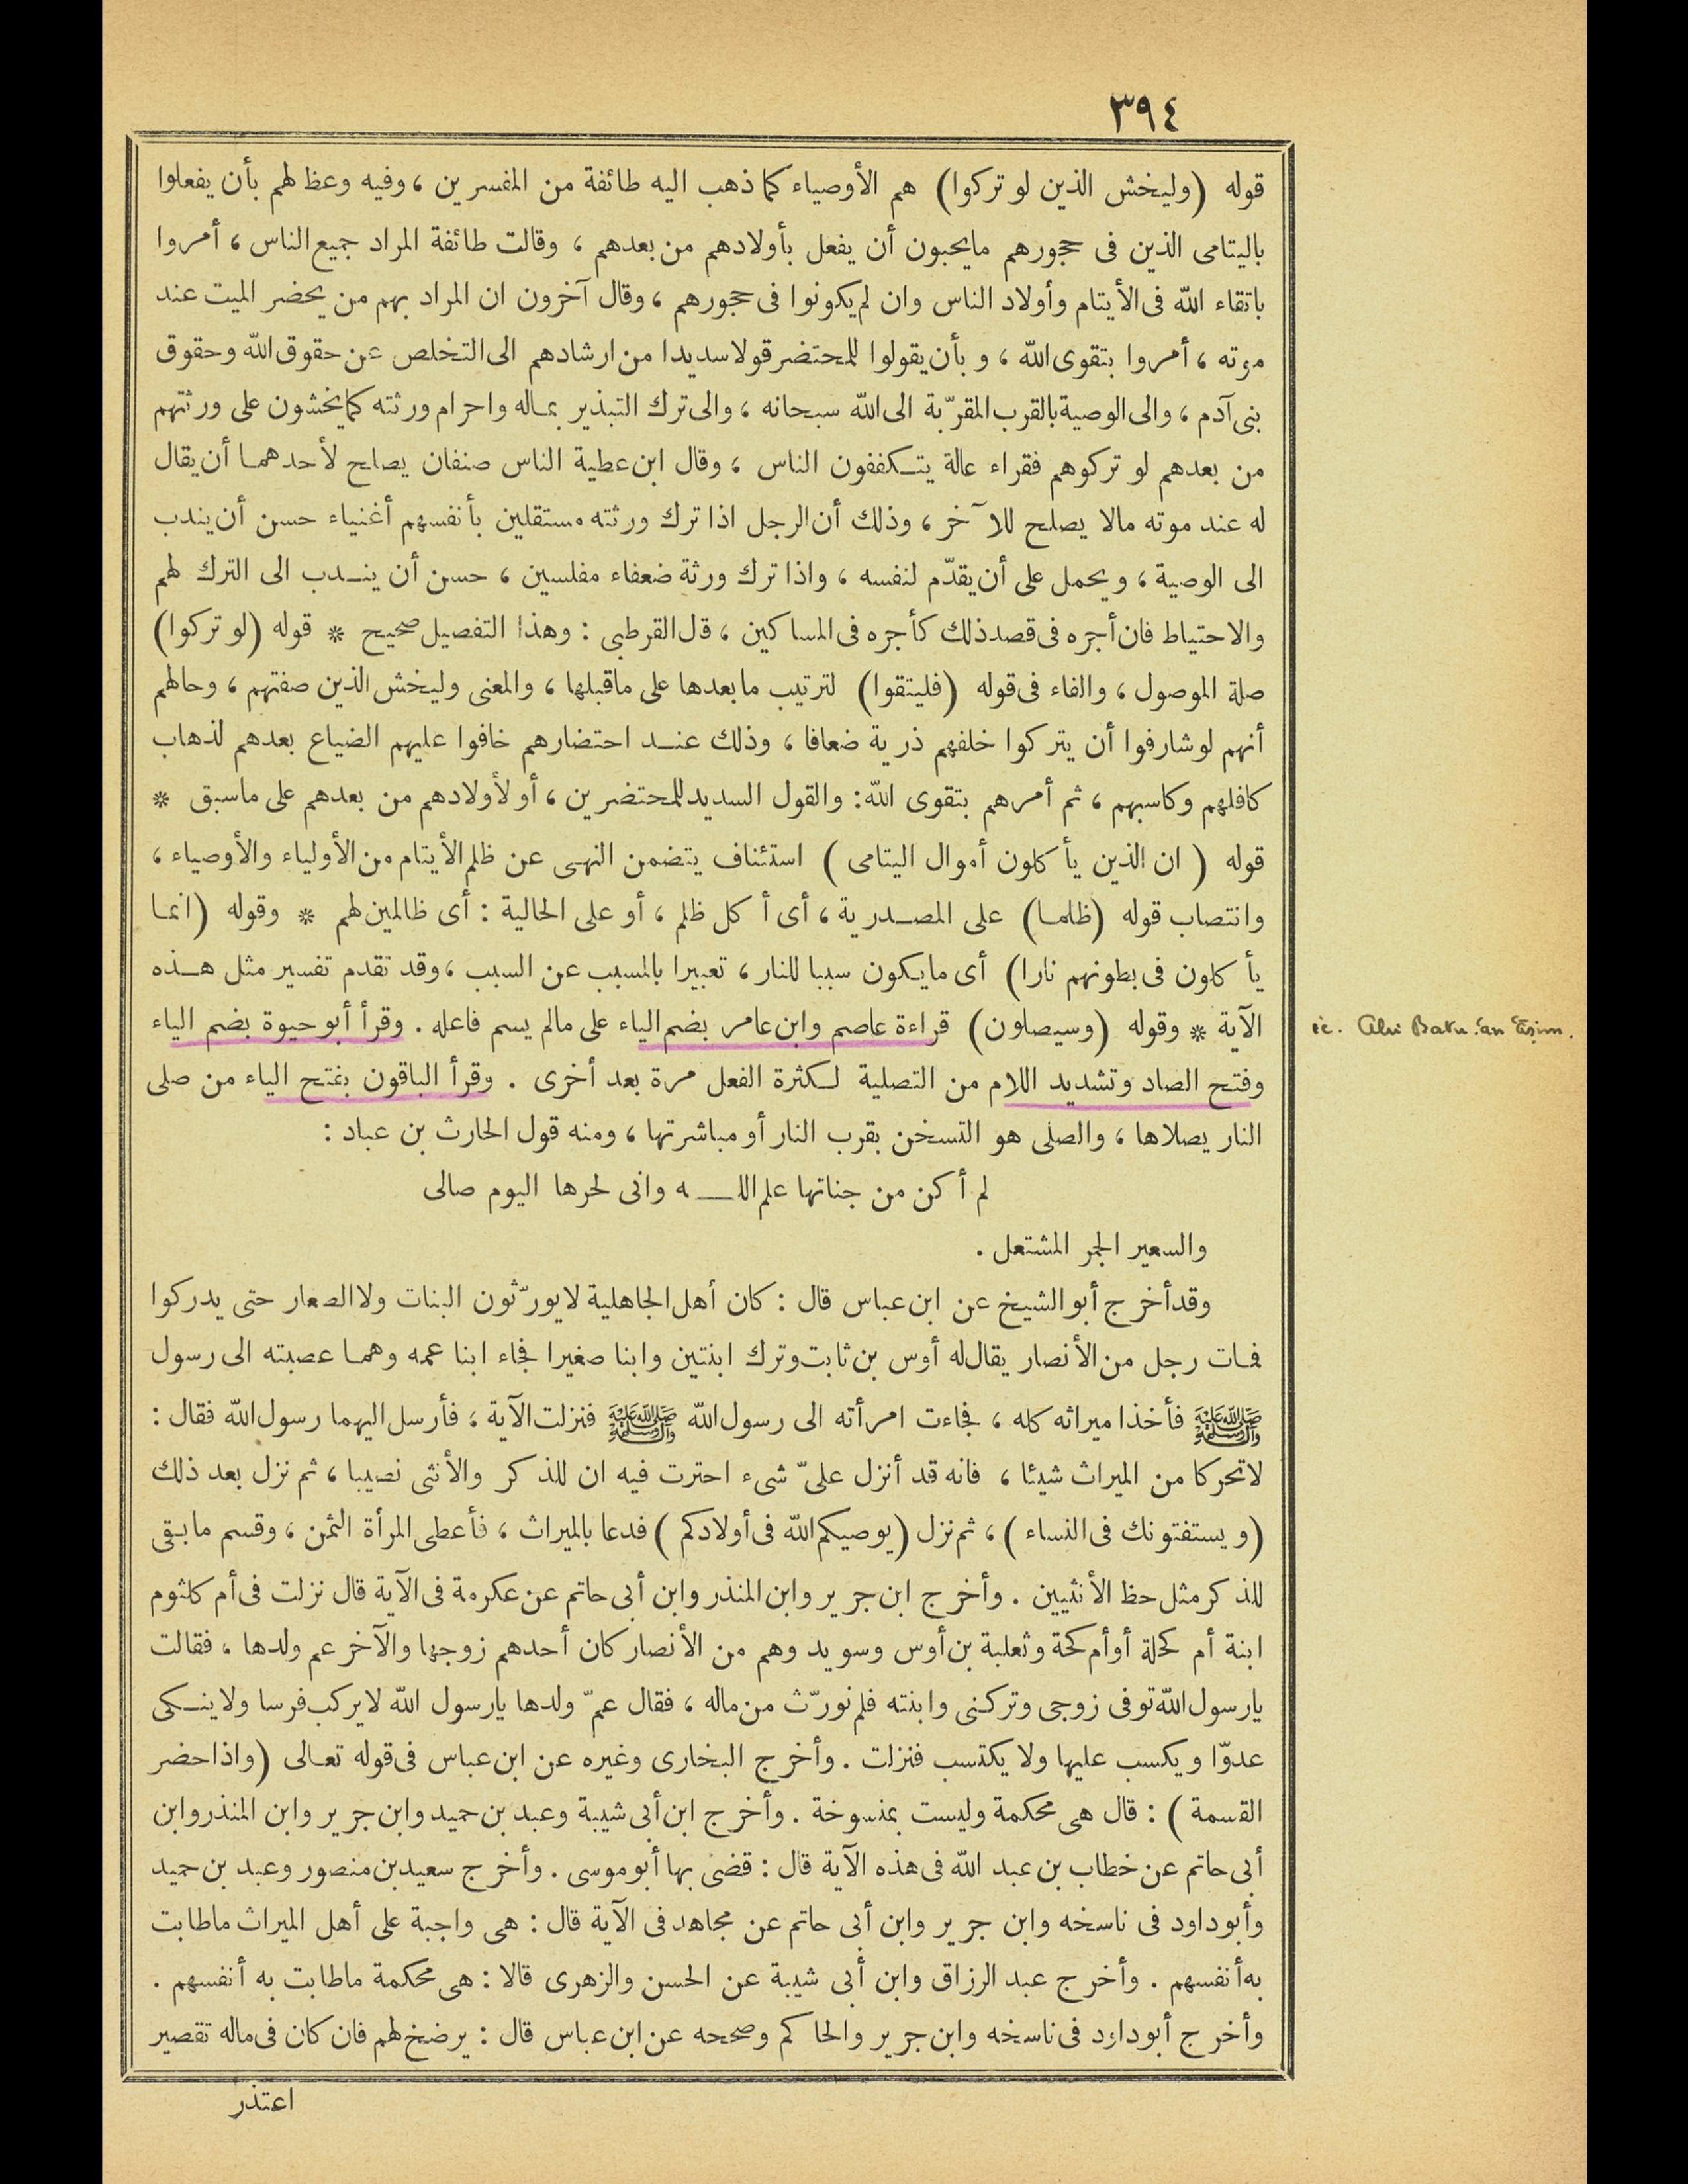 ٣٩٤
قوله (وليخش الذين لو تركوا) هم الأوصياء كما ذهب اليه طائفة من المفسرين ، وفيه وعظ لهم بأن يفعلوا
باليتامى الذين فى حجورهم مايحبون أن يفعل بأولادهم من بعدهم ، وقالت طائفة المراد جميع الناس ، أمروا
باتقاء الله فى الأيتام وأولاد الناس وان لم يكونوا فى حجورهم ، وقال آخرون ان المراد بهم من يحضر الميت عند
موته ، أمروا بتقوى الله ، وبأن يقولوا للمحتضر قولا سديدا من ارشادهم الى التخلص عن حقوق الله وحقوق
بنى آدم ، والى الوصية بالقرب المقرّبة الى الله سبحانه ، والى ترك التبذير بماله واحرام ورثته كما يخشون على ورثتهم
من بعدهم لو تركوهم فقراء عالة يتكففون الناس ، وقال ابن عطية الناس صنفان يصلح لأحدهما أن يقال
له عند موته مالا يصلح للآخر ، وذلك أن الرجل اذا ترك ورثته مستقلين بأنفسهم أغنياء حسن أن يندب
الى الوصية ، ويحمل على أن يقدّم لنفسه ، واذا ترك ورثة ضعفاء مفلسين ، حسن أن يندب الى الترك لهم
والاحتياط فان أجره فى قصد ذلك كأجره فى المساكين ، قل القرطبى : وهذا التفصيل صحيح * قوله (لو تركوا)
صلة الموصول ، والفاء فى قوله (فليتقوا) لترتيب مابعدها على ماقبلها ، والمعنى وليخش الذين صفتهم ، وحالهم
أنهم لو شارفوا أن يتركوا خلفهم ذرية ضعافا ، وذلك عند احتضارهم خافوا عليهم الضياع بعدهم لذهاب
كافلهم وكاسبهم ، ثم أمرهم بتقوى الله : والقول السديد للمحتضرين ، أو لأولادهم من بعدهم على ماسبق *
قوله ( ان الذين يأكلون أموال اليتامى ) استئناف يتضمن النهى عن ظلم الأيتام من الأولياء والأوصياء ،
وانتصاب قوله (ظلما) على المصدرية ، أى أكل ظلم ، أو على الحالية : أى ظالمين لهم * وقوله (انما
يأكلون فى بطونهم نارا) أى مايكون سببا للنار ، تعبيرا بالمسبب عن السبب ، وقد تقدم تفسير مثل هذه
الآية * وقوله (وسيصلون) قراءة عاصم وابن عامر بضم الياء على مالم يسم فاعله . وقرأ أبو حيوة بضم الياء
ie. Abi Bakr ʿan ʿĀṣim.
وفتح الصاد وتشديد اللام من التصلية لكثرة الفعل مرة بعد أخرى . وقرأ الباقون بفتح الياء من صلى
النار يصلاها ، والصلى هو التسخن بقرب النار أو مباشرتها ، ومنه قول الحارث بن عباد :
لم أكن من جناتها علم اللـــه وانى لحرها اليوم صالى
والسعير الجمر المشتعل .
وقد أخرج أبو الشيخ عن ابن عباس قال : كان أهل الجاهلية لايورّثون البنات ولا الصغار حتى يدركوا
فمات رجل من الأنصار يقال له أوس بن ثابت وترك ابنتين وابنا صغيرا فجاء ابنا عمه وهما عصبته الى رسول
ﷺ فأخذا ميراثه كله ، فجاءت امرأته الى رسول الله ﷺ فنزلت الآية ، فأرسل اليهما رسول الله فقال :
لاتحركا من الميراث شيئا ، فانه قد أنزل علىّ شىء احترت فيه ان للذكر والأنثى نصيبا ، ثم نزل بعد ذلك
(ويستفتونك فى النساء) ، ثم نزل (يوصيكم الله فى أولادكم) فدعا بالميراث ، فأعطى المرأة الثمن ، وقسم مابقى
للذكر مثل حظ الأنثيين . وأخرج ابن جرير وابن المنذر وابن أبى حاتم عن عكرمة فى الآية قال نزلت فى أم كلثوم
ابنة أم كحلة أو أم كحة وثعلبة بن أوس وسويد وهم من الأنصار كان أحدهم زوجها والآخر عم ولدها ، فقالت
يارسول الله توفى زوجى وتركنى وابنته فلم نورّث من ماله ، فقال عمّ ولدها يارسول الله لايركب فرسا ولا ينكى
عدوّا ويكسب عليها ولا يكتسب فنزلت . وأخرج البخارى وغيره عن ابن عباس فى قوله تعالى (واذا حضر
القسمة) : قال هى محكمة وليست بمنسوخة . وأخرج ابن أبى شيبة وعبد بن حميد وابن جرير وابن المنذر وابن
أبى حاتم عن خطاب بن عبد الله فى هذه الآية قال : قضى بها أبو موسى . وأخرج سعيد بن منصور وعبد بن حميد
وأبو داود فى ناسخه وابن جرير وابن أبى حاتم عن مجاهد فى الآية قال : هى واجبة على أهل الميراث ماطابت
به أنفسهم . وأخرج عبد الرزاق وابن أبى شيبة عن الحسن والزهرى قالا : هى محكمة ماطابت به أنفسهم .
وأخرج أبو داود فى ناسخه وابن جرير والحاكم وصححه عن ابن عباس قال : يرضخ لهم فان كان فى ماله تقصير
اعتذر